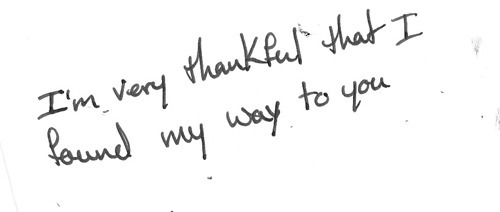 I'm very thankful that I
found my way to you